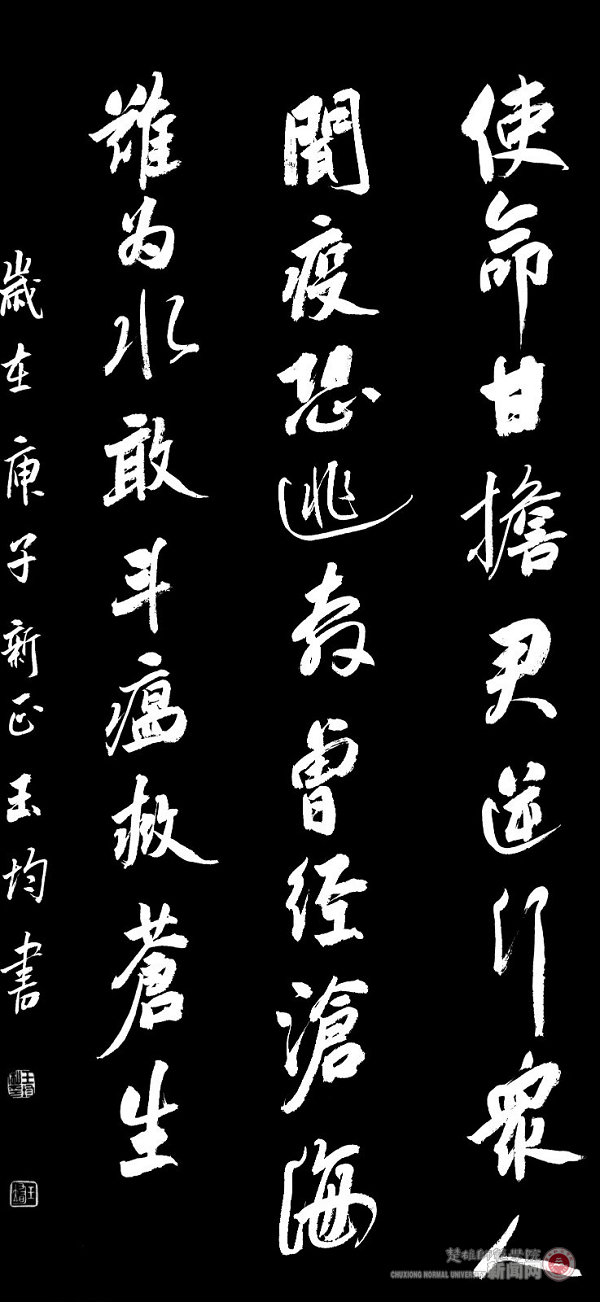 使命甘擔君逆行眾人
聞疫恐逃曾经滄海
難为水敢斗瘟救蒼生
歲在庚子新正玉均書
楚雄師範學院
CHUXIONG NORMAL UNIVERSITY 新闻网